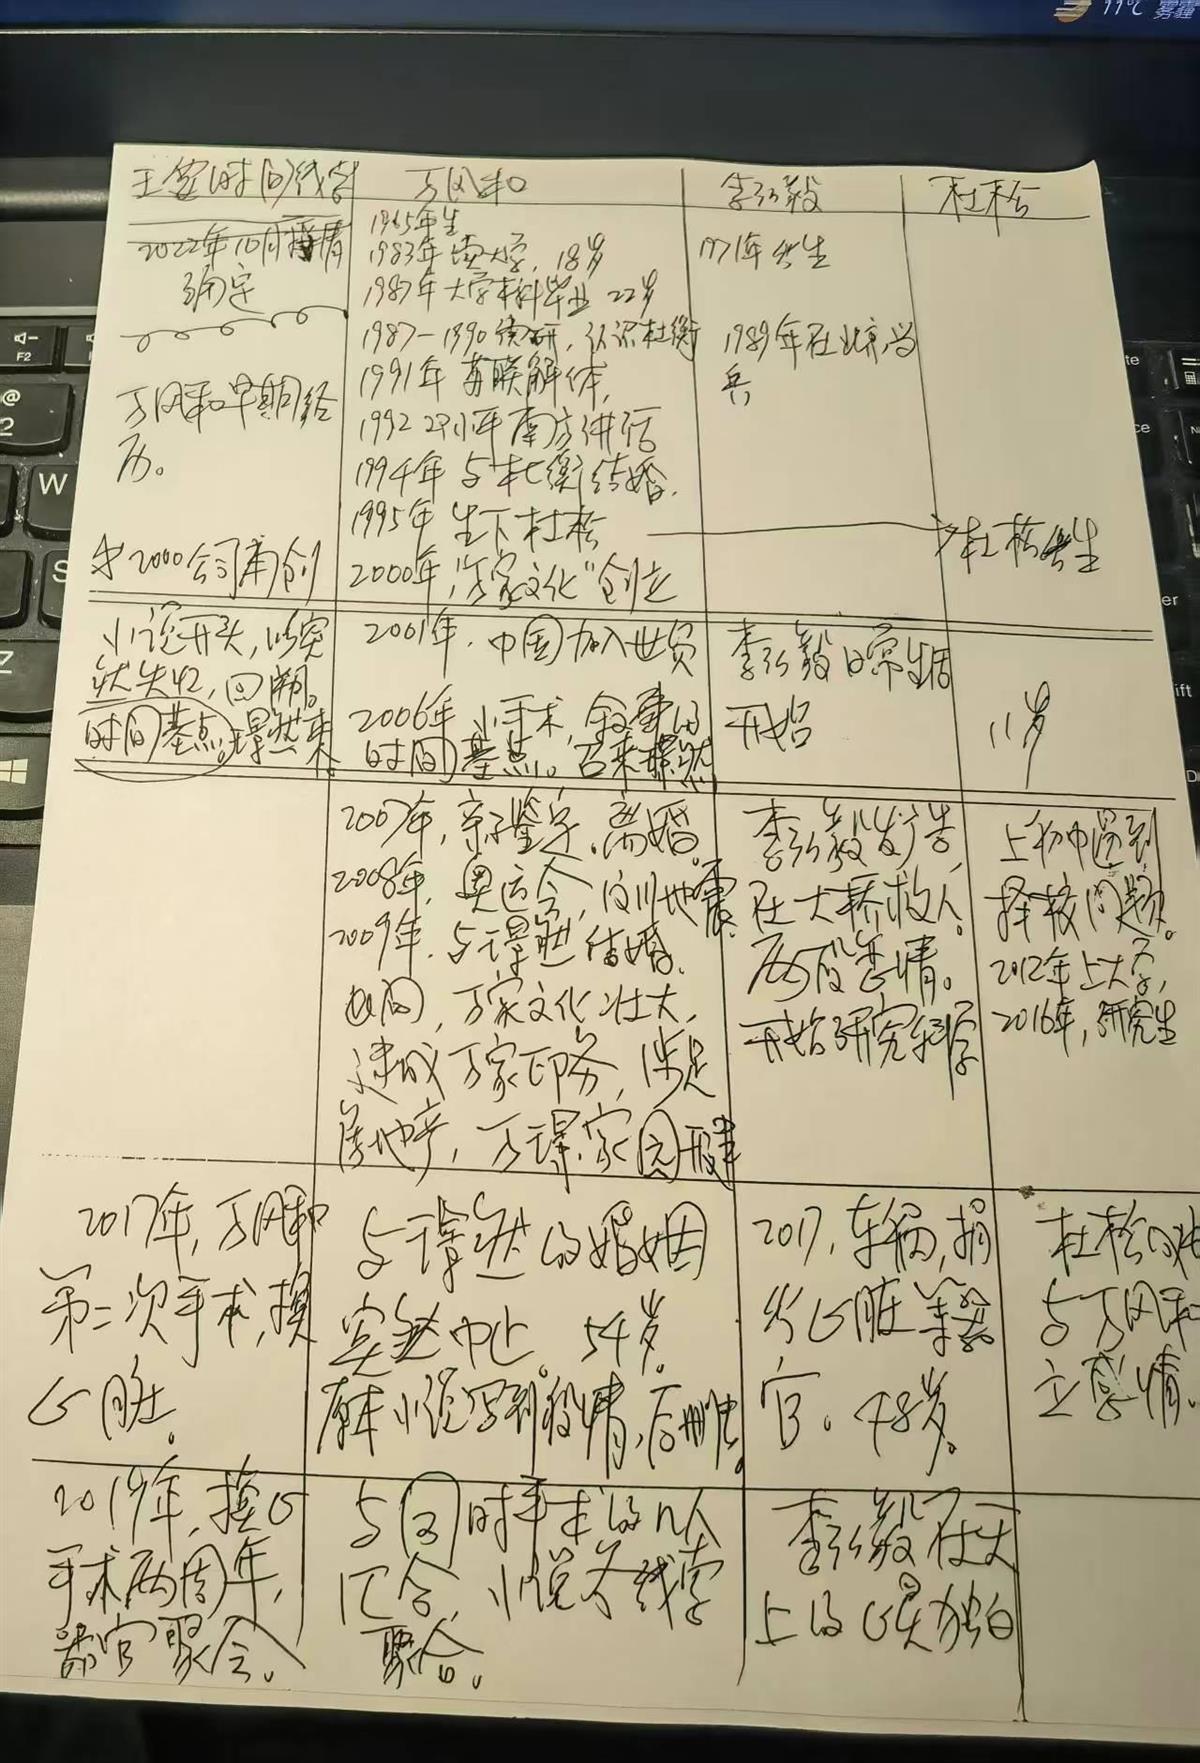 11℃ 雾霾
主要时间线索
万风和
李弘毅
杜松
2022年10月稿情
确定
万风和早期经
历。
2000公司草创
1965年生
1983年读大学，18岁
1987年大学本科毕业 22岁
1987—1990读研，认识杜衡
1991年 苏联解体，
1992 邓小平南方讲话
1994年 与杜衡结婚.
1995年 生下杜松
2000年，“万家文化”创立
1971年出生
1989年在北京当
兵
杜松出生
小说开头，以突
然失忆，回溯。
时间基点。璟然来。
2001年，中国加入世贸
2006年 小手术，叙事的
时间基点。召来璟然
李弘毅日常生活
开始
11岁
2007年，亲子鉴定，离婚。
2008年，奥运会，汶川地震
2009年，与璟然结婚.
此间，万家文化壮大，
建成万家印务，涉足
房地产，万璟家园开建
李弘毅发广告，
在大桥救人。
两段恋情。
开始研究科学
上初中遇到
择校问题。
2012年上大学，
2016年，研究生
2017年，万风和
第二次手术，换
心脏。
与璟然的婚姻
突然中止。 54岁。
原本小说写到疫情，后删去。
2017，车祸，捐
出心脏等器
官。48岁。
杜松
与万风和
立感情。
2019年，换心
手术两周年，
器官聚会。
与同时手术的几人
汇合，小说各线索
聚合。
李弘毅在天
上的心灵独白